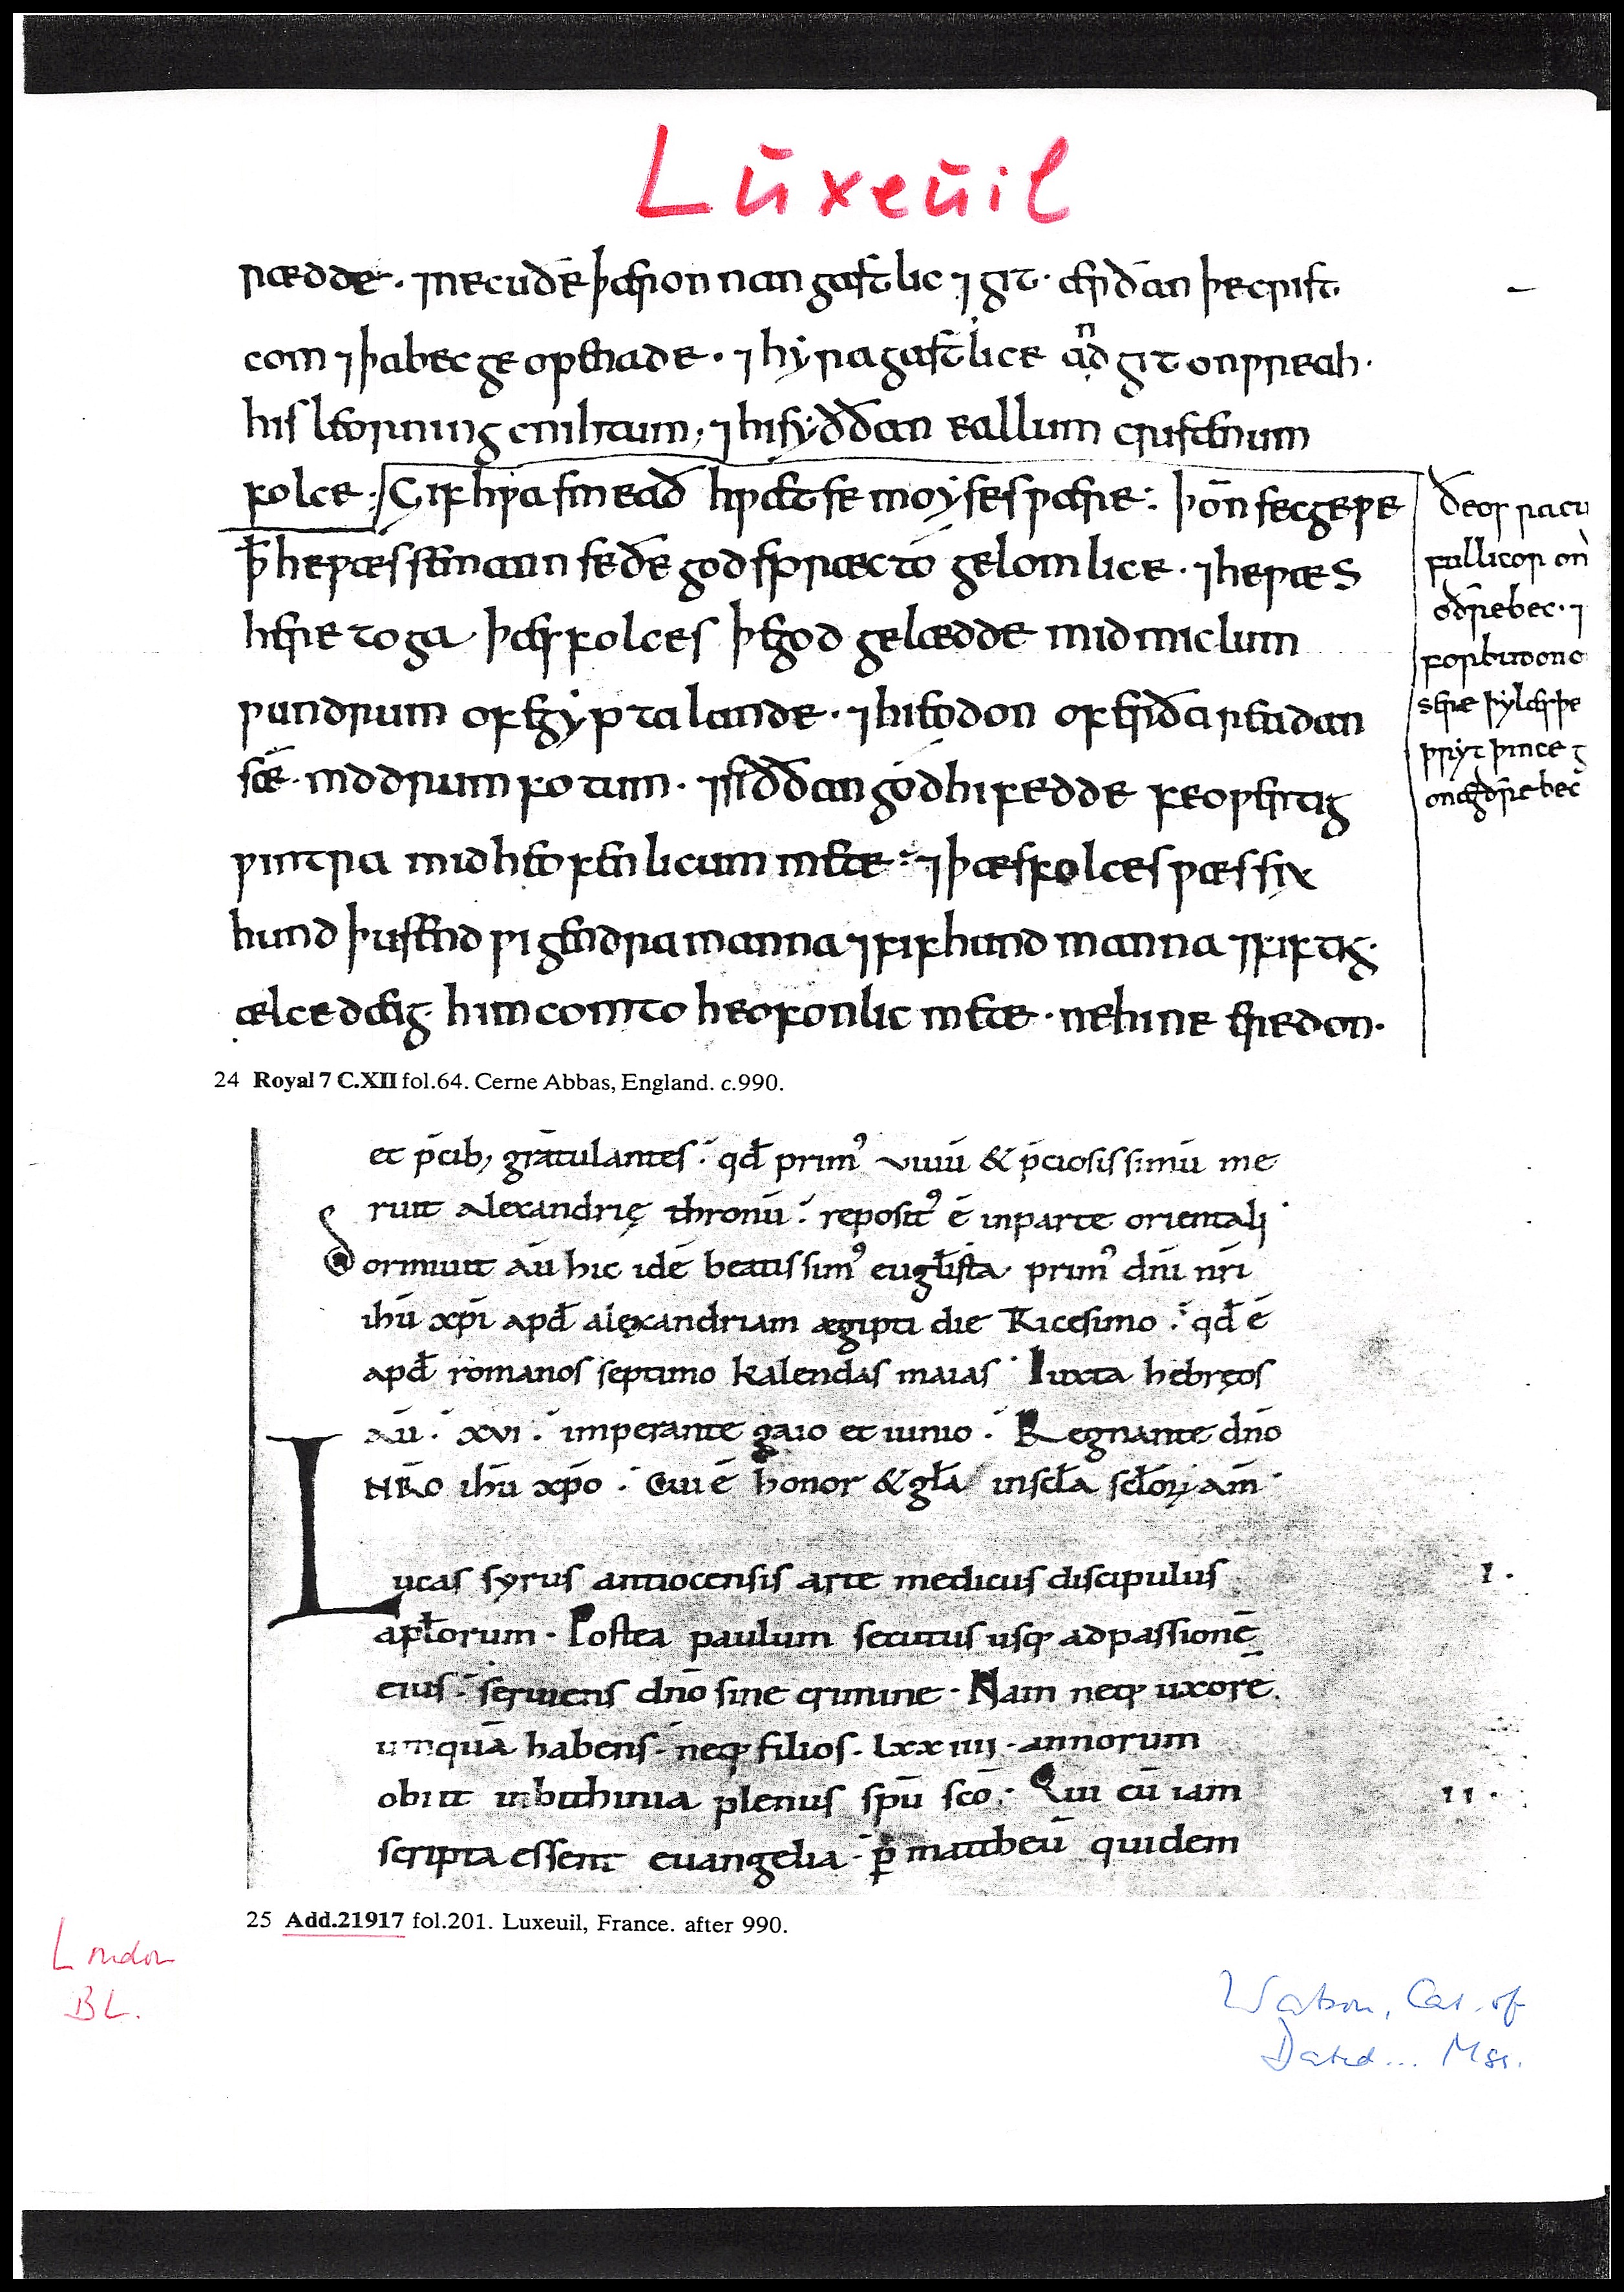 Luxeuil
rædde · ⁊ ne cuðe þær on nan gastlic ⁊git · ærðan þe crist
com ⁊ þa bec geopenade · ⁊ hyra gastlice andgit onwreah ·
his leorningcnihtum ; ⁊ hi syððan eallum cristenum
folce · Gif hƿa smeað hwæt se moyses wære : þoñ secge we
ꝥ he wæs se mann se ðe god spræc tó gelomlice · ⁊ he wæs
heretoga þæs folces þe god gelædde mid miclum
wundrum of egypta lande · ⁊ hi eodon ofer ða readan
sǽ · mid drium fotum · ⁊ siððan gód hi fedde feowertig
wintra mid heofenlicum mete : ⁊ þæs folces wæs six
hund þusend wigendra manna ⁊ fif hund manna ⁊ fiftig ·
ælce dæig him com to heofonlic mete · ne hi ne eredon ·
24 Royal 7 C.XII fol.64. Cerne Abbas, England. c.990.
et p̄cib; gratulantes · qđ primꝰ uiuū & p̄ciosissimū me
ruit alexandrię thronū : reposit ꝰ ē inparte orientali
dormiuit aū hic idē beatissimꝰ euglista primꝰ dn̄i nr̄i
ihū xp̄i apđ alexandriam ægipti die tricesimo : qđ ē
apđ romanos septimo kalendas maias · Iuxta hebręos
aū · xvi · imperante gaio et iunio · Regnante dn̄o
NRO ihū xp̄o · Cui ē honor & gl̄a insēla sēloꝝ am̄ ·
Lucas syrus antiocensis arte medicus discipulus
I ·
apl̄orum · Postea paulum secutus usq; adpassionē
eius · seruiens dn̄o sine crimine · Nam neq; uxorē
umquā habens · neq; filios · lxxiiij · annorum
obiit inbithinia plenus sp̄u sc̄o · Qui cū iam
II ·
scripta essent euangelia · ꝑ mattheū quidem
25 Add.21917 fol.201. Luxeuil, France. after 990.
London
BL.
Watson, Cat. of
Dated... Mss.